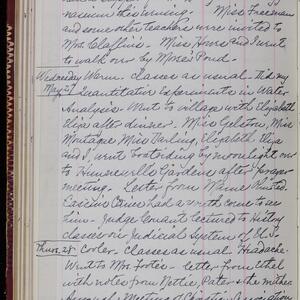 resume this evening. Miss Freeman
and some other teachers were invited to
Mrs. Claflin's - Miss Howes and I went
to walk over by Morse's Pond.
Wednesday Warm. Classes as usual. Did my
May 27 quantitative experiments in Water
Analysis - Went to village with Elizabeth
Eliza after dinner. Miss Gelston, Miss
Montague Miss Darling, Elizabeth Eliza
and I, went boat-riding by moonlight over
to Hunnewell's Gardens after prayer
meeting. Letter from Mame
Cassin had a to come to see
him - Judge Conant lectured to History
classes on Judicial System of U.S.
Thurs. 28 Cooler. Classes as usual. Headache.
Went to Mrs. Foster - Letter from Ethel
with notes from Nettie, Pater & the mither
Meeting of Christian Association